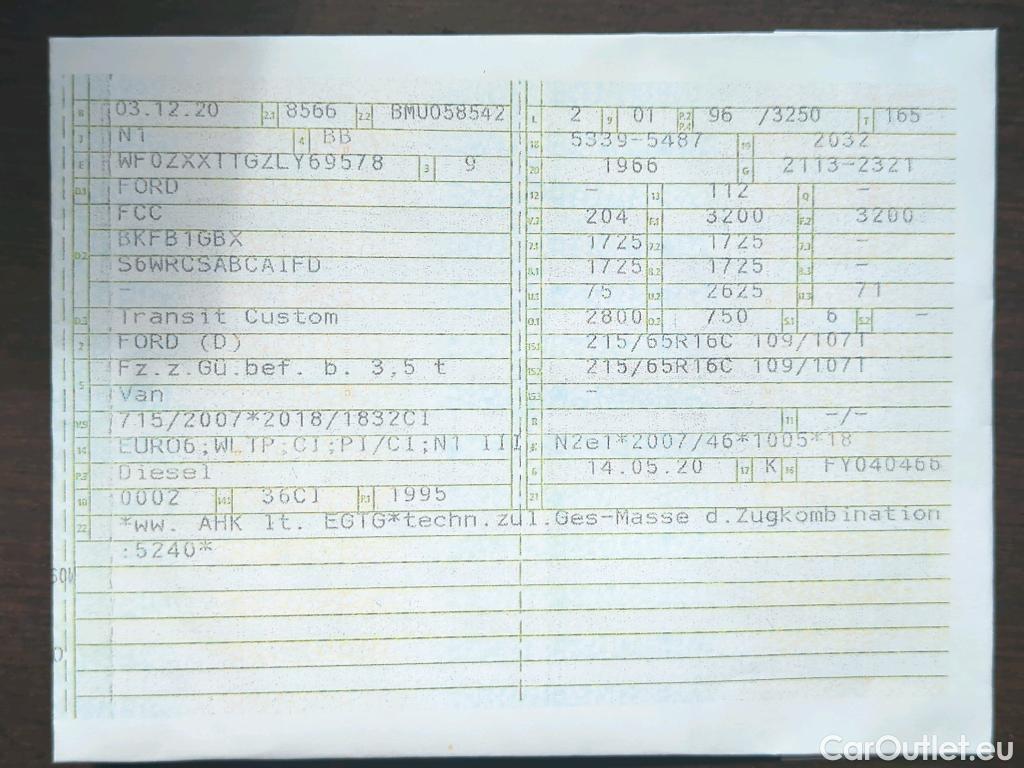 B 03.12.20 2.1 8566 2.2 BMU058542
J N1 4 BB
E WF0ZXXTTGZLY69578 3 9
D.1 FORD
FCC
D.2 BKFB1GBX
S6WRCSABCA1FD
-
D.3 Transit Custom
2 FORD (D)
5 Fz.z.Gü.bef. b. 3,5 t
Van
V.9 715/2007*2018/1832CI
14 EURO6;WLTP;CI;PI/CI;N1 III
P.3 Diesel
10 0002 14.1 36CI P.1 1995
L 2 9 01 P.2 P.4 96 /3250 T 165
18 5339-5487 19 2032
20 1966 G 2113-2321
12 - 13 112 Q -
V.7 204 F.1 3200 F.2 3200
7.1 1725 7.2 1725 7.3 -
8.1 1725 8.2 1725 8.3 -
U.1 75 U.2 2625 U.3 71
O.1 2800 O.2 750 S.1 6 S.2 -
15.1 215/65R16C 109/107T
15.2 215/65R16C 109/107T
15.3 -
R 11 -/-
K N2e1*2007/46*1005*18
6 14.05.20 17 K 16 FY040466
21
22 *ww. AHK lt. EGTG*techn.zul.Ges-Masse d.Zugkombination
:5240*
CarOutlet.eu